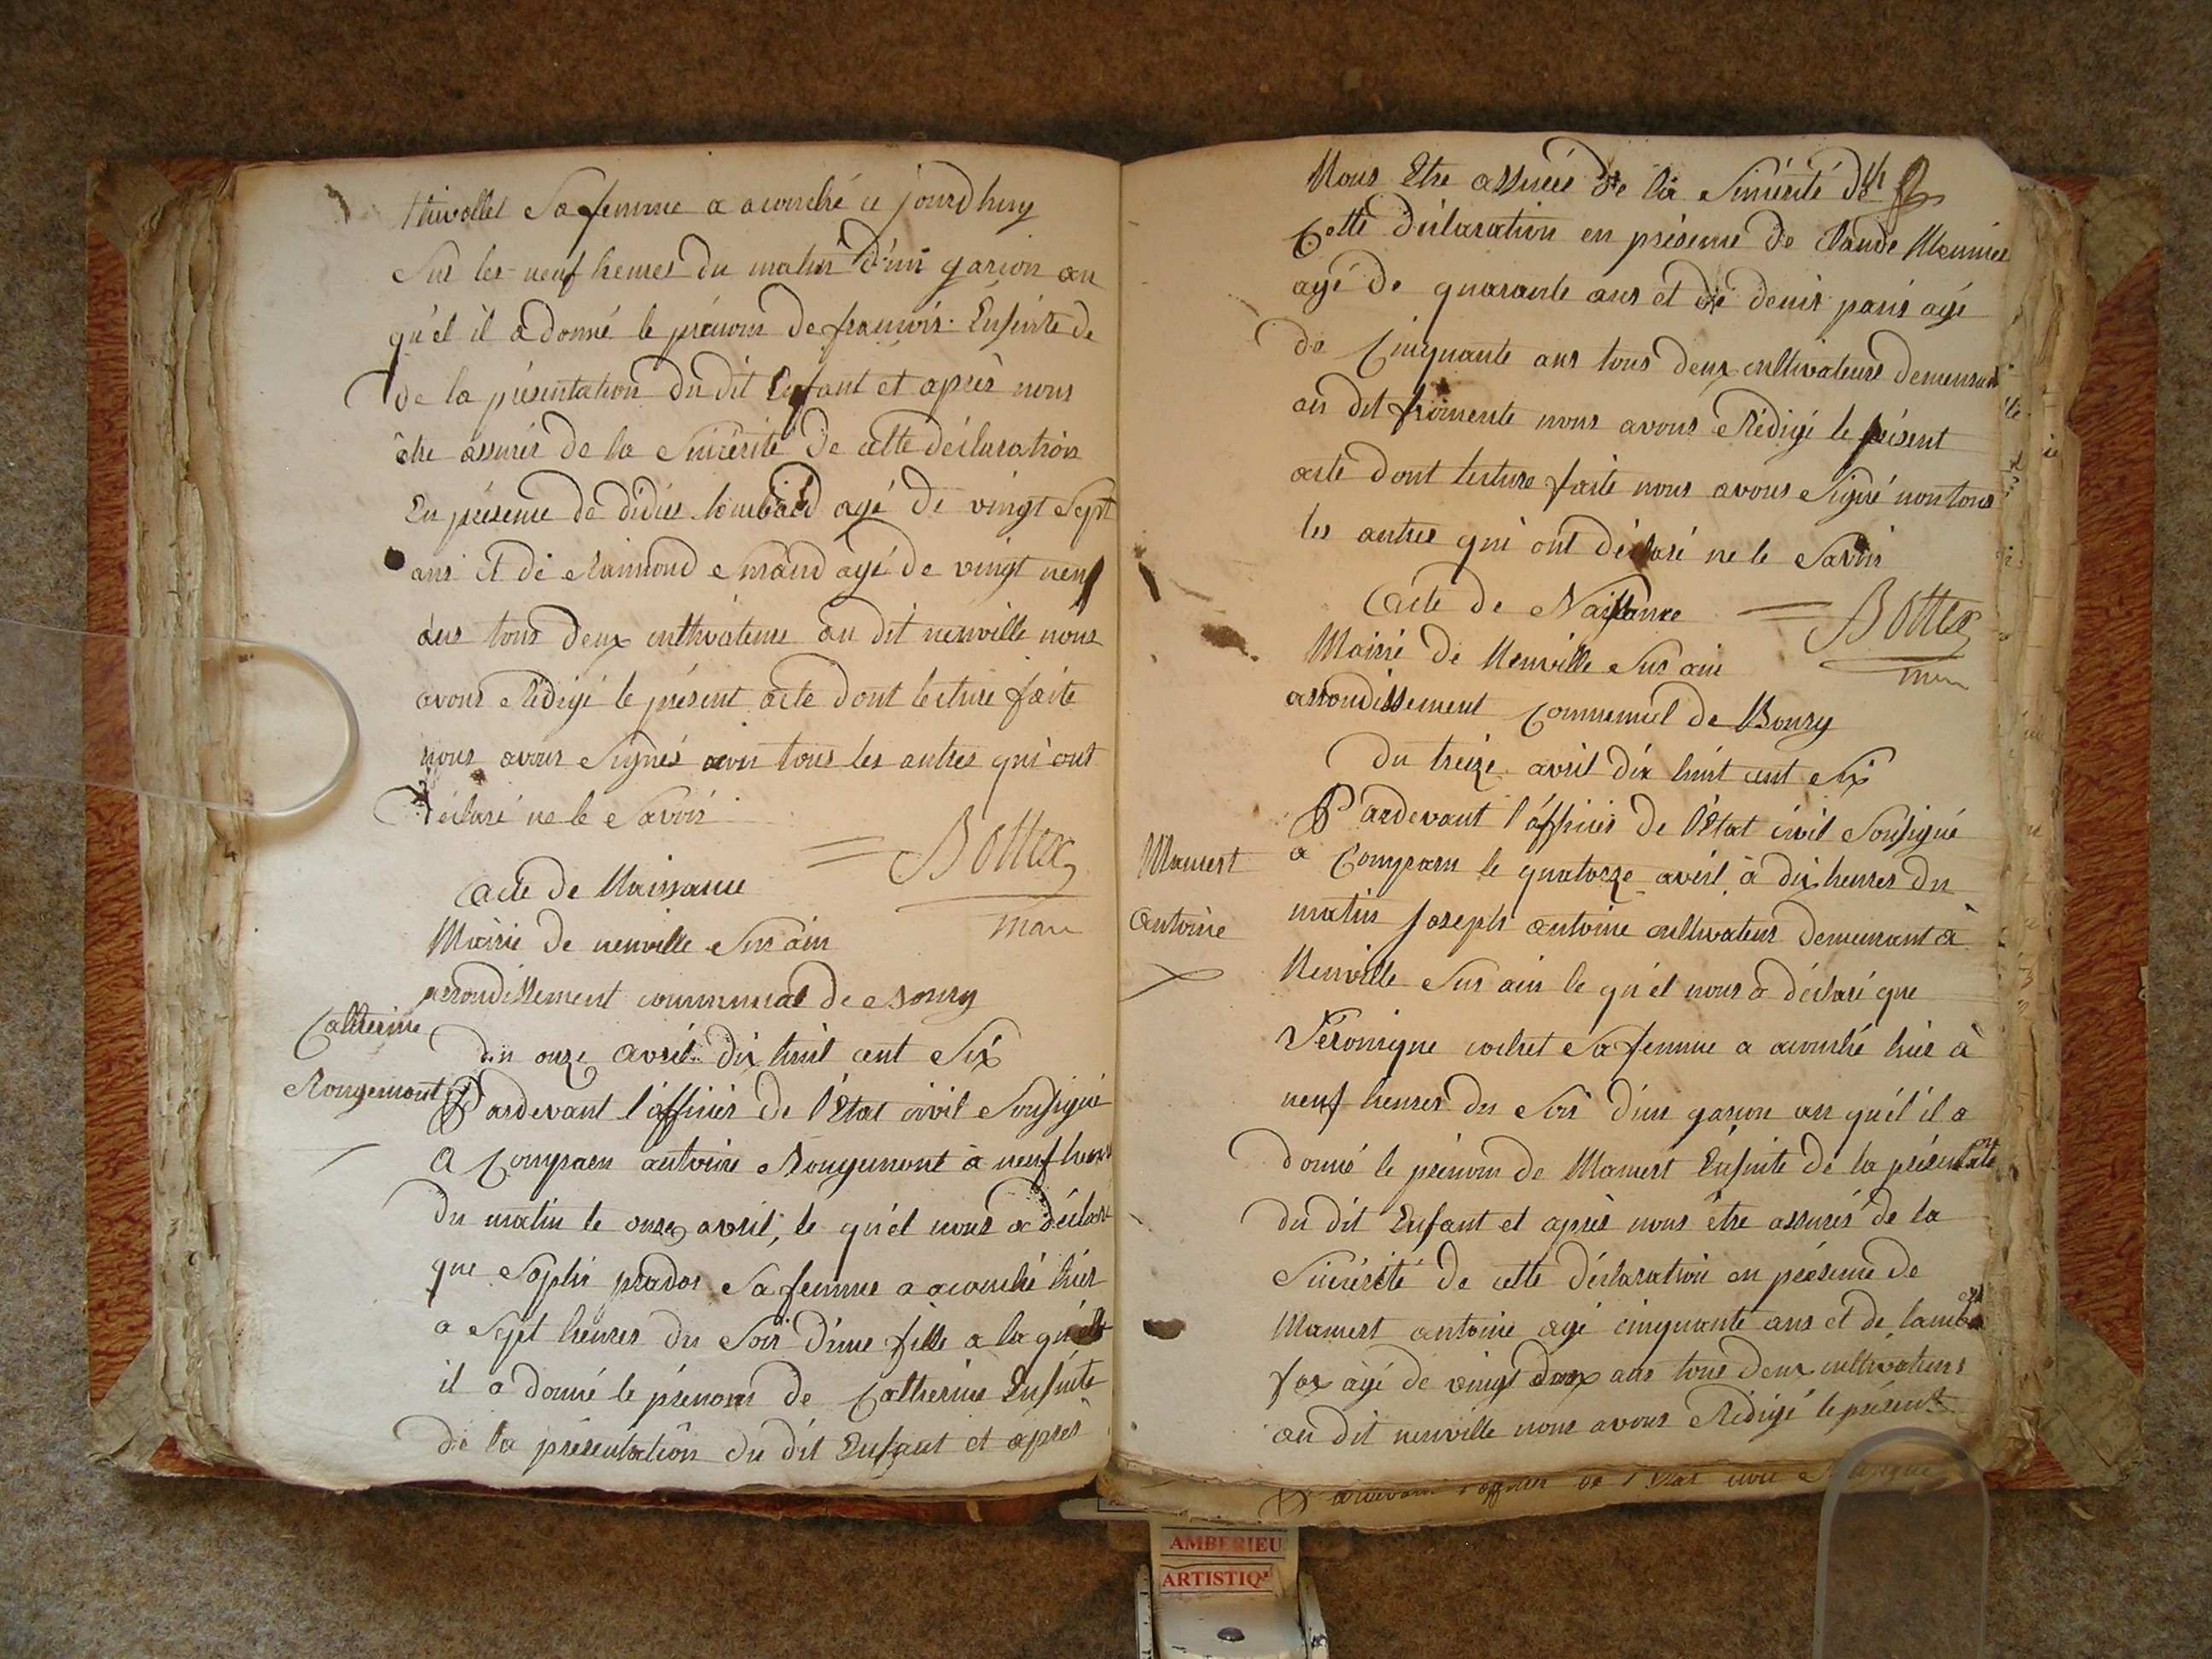 thivollet Sa femme a acouché ce jourdhuy
Sur les neuf heures du matin d'un garcon au
qu'el il a donné le prénom de francois. Ensuite de
de la présentation du dit Enfant et après nous
être assurés de la Sincérité de cette déclaration
En présence de didier lombard agé de vingt Sept
ans Et de Raimond agé de vingt neuf
ans tous deux cultivateurs au dit neuville nous
avons Rédigé le présent acte dont lecture faite
nous avons Signés non tous les autres qui ont
déclaré ne le Savoir
= Bottex
maire
acte de Naissance
Mairie de neuville Sur ain
arrondissement communal de Bourg
Catherine
du onze avril dix huit cent Six
Rougemont
Pardevant l'afficier de l'Etat civil Sousigné
A Comparu antoine Rougemont à neuf heures
du matin le onze avril, le qu'el nous a déclaré
que Sophie prados Sa femme a acouché hier
a Sept heures du Soir d'une fille a la qu'elle
il a donné le prénom de Catherine Ensuite
de la présentation du dit Enfant et après
Nous Etre assurés de la Sincérité de
Cette déclaration en présence de Claude Meunier
agé de quarante ans et de denis paris agé
de Cinquante ans tous deux cultivateurs demeurant
au dit fromente nous avons Rédigé le présent
acte dont lecture faite nous avons Signé non tous
les autres qui ont déclaré ne le Savoir
acte de Naissance = Bottex
maire
Mairie de Neuville Sur ain
arrondissement Communel de Bourg
du treize avril dix huit cent Six
Pardevant l'afficier de l'Etat civil Sousigné
Mamert
a Comparu le quatorze avril à dix heures du
Antoine
matin Joseph antoine cultivateur demeurant à
Neuville Sur ain le qu'el nous a déclaré que
Véronique cochet Sa femme a acouché hier à
neuf heures du Soir d'un garcon au qu'el il a
donné le prénom de Mamert Ensuite de la présentation
du dit Enfant et après nous être assurés de la
Sincérité de cette déclaration en présence de
Mamert antoine agé cinquante ans et de lambert
agé de vingt deux ans tous deux cultivateurs
au dit neuville nous avons Rédigé le présent
Pardevant l'afficier de l'Etat civil
AMBERIEU
ARTISTIQ